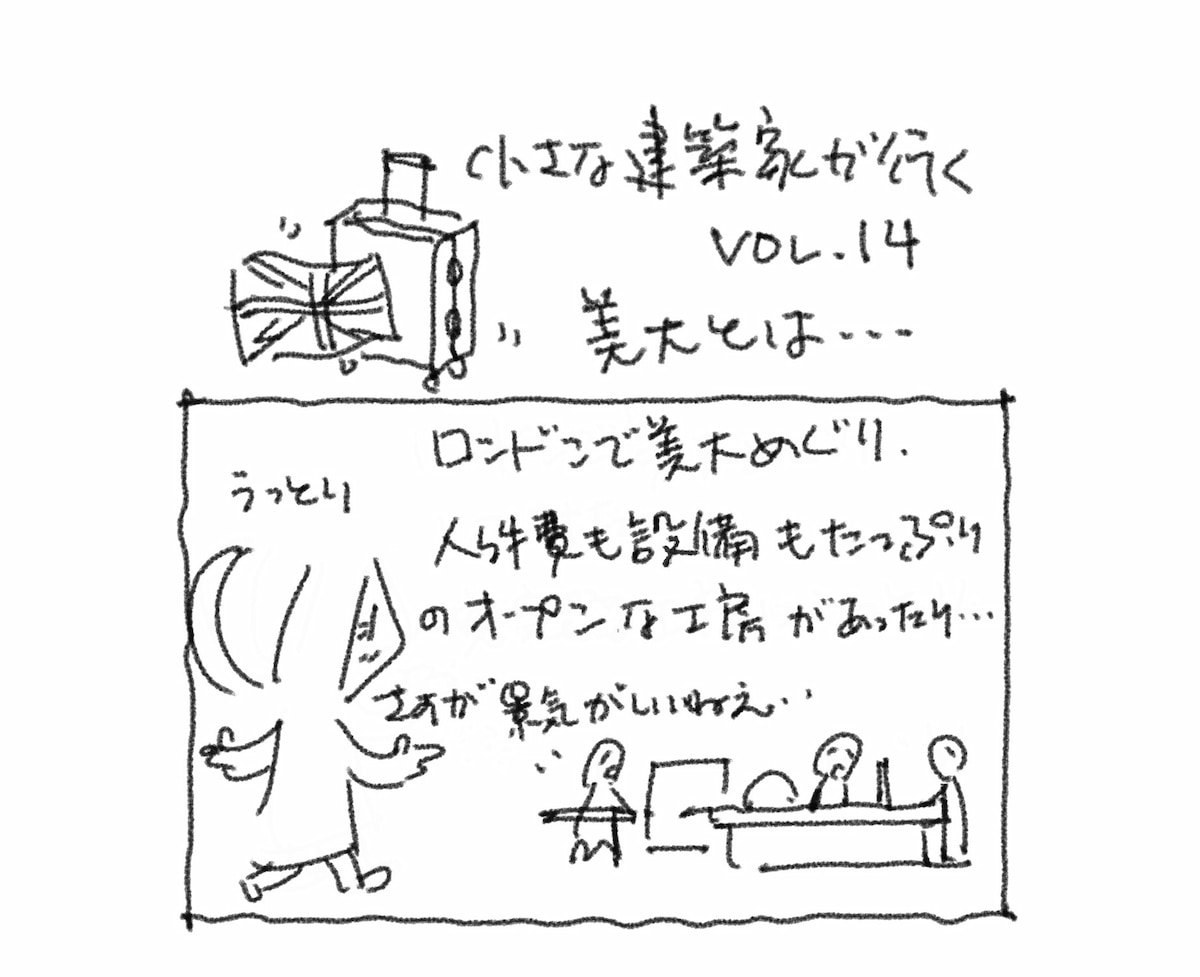 小さな建築家が行く
VOL.14
美大とは…
ロンドンで美大めぐり.
うっとり
人件費も設備もたっぷり
のオープンな工房があったり…
さすが景気がいいねえ..